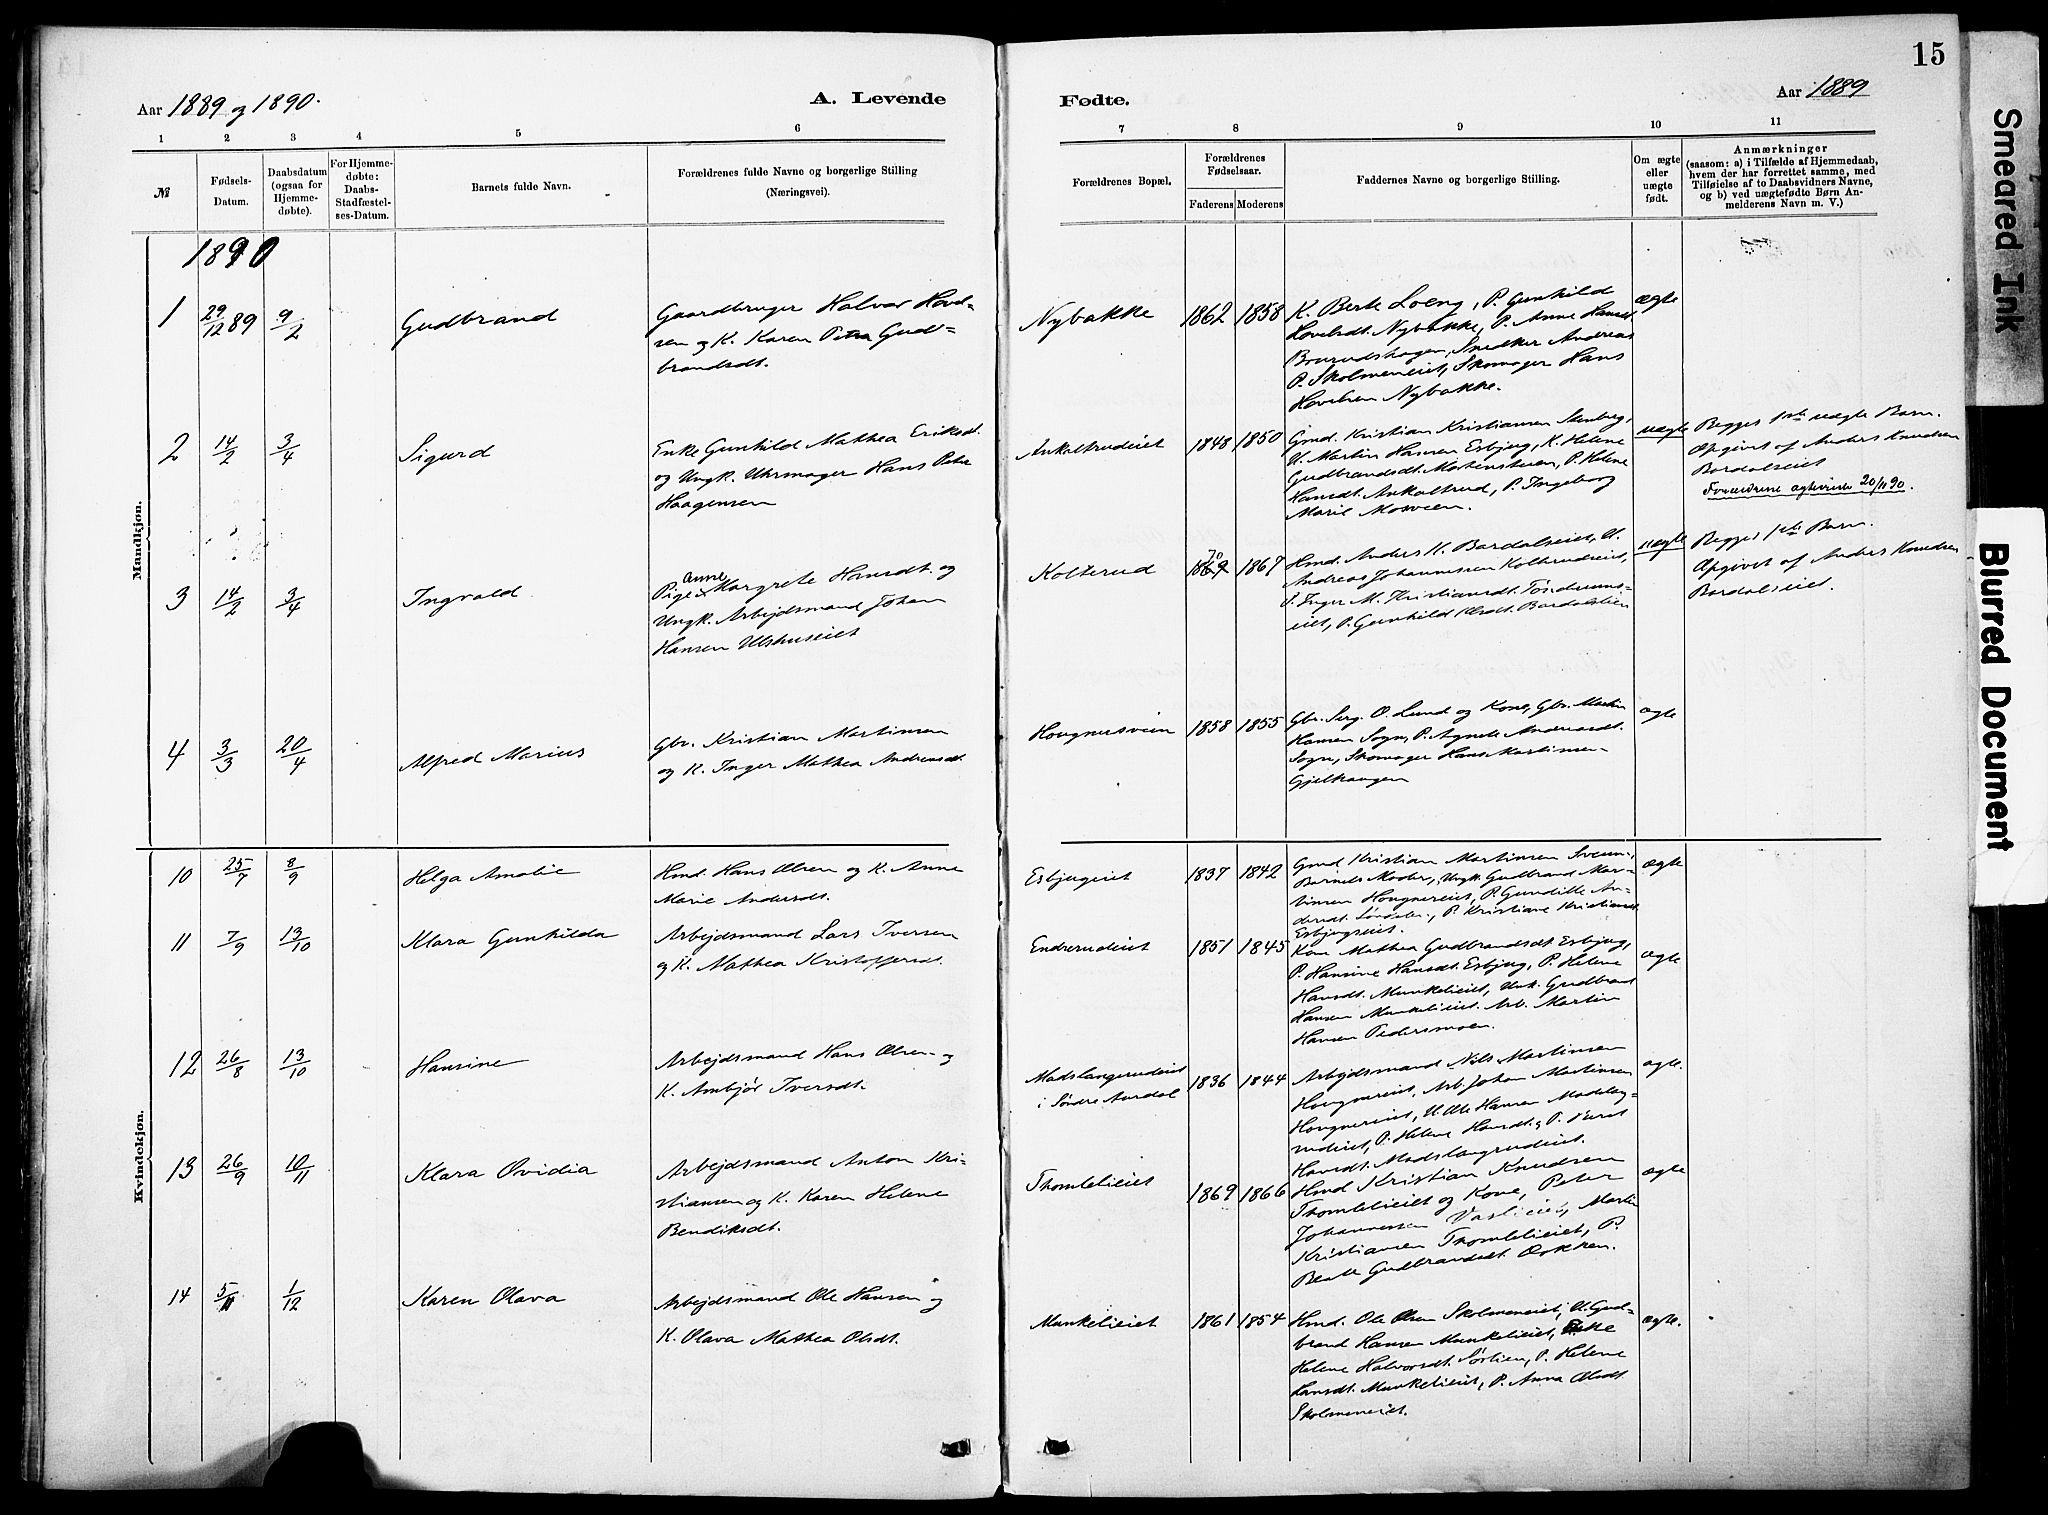 15
Aar 1889 og 1890.
A. Levende
Fødte.
Aar 1889
1 2 3 4 5 6 7 8 9 10 11
№
Fødsels-
Datum.
Daabsdatum
(ogsaa for
Hjemme-
døbte).
For Hjemme-
døbte:
Daabs-
Stadfæstel-
ses-Datum.
Barnets fulde Navn.
Forældrenes fulde Navne og borgerlige Stilling
(Næringsvei).
Forældrenes Bopæl.
Forældrenes
Fødselsaar.
Faderens Moderens
Faddernes Navne og borgerlige Stilling.
Om ægte
eller
uægte
født.
Anmærkninger
(saasom: a) i Tilfælde af Hjemmedaab,
hvem der har forrettet samme, med
Tilføielse af to Daabsvidners Navne,
og b) ved uægtefødte Børn An-
melderens Navn m. V.)
Mandkjøn.
1890
1 29/12 89 9/2 Gudbrand
Gaardbruger Halvor Hovel-
sen og K. Karen Petra Gud-
brandsdt.
Nybakke 1862 1858
K. Berte Loeng, P. Gunhild
Hovelsdt. Nybakke, P. Anne Hansdt.
Brurudshagen, Snedker Andreas
P. Skolmeneiet, Skomager Hans
Hovelsen Nybakke.
ægte
2 14/2 3/4 Sigurd
Enke Gunhild Mathea Eriksdt.
og Ungk. Uhrmager Hans Peter
Haagensen
Ankoltrudeiet 1848 1850
Gmd. Kristian Kristiansen Stenberg,
U. Martin Hansen Esbjug, K. Helene
Gudbrandsdt. Mortenstuen, P. Helene
Hansdt. Ankoltrud, P. Ingeborg
Marie Mosveen.
uægte
Begges 1ste uægte Barn.
Opgivet af Anders Knudsen
Bardalseiet
Forældrene ægteviede 20/11 90.
3 14/2 3/4 Ingvald
Pige Anne Margrete Hansdt. og
Ungk. Arbejdsmand Johan
Hansen Ulshuseiet
Kolterud 1869 70 1867
Hmd. Anders K. Bardalseiet, U.
Andreas Johannessen Kolterudeiet,
P. Inger M. Kristiansdt.
eiet, P. Gunhild Bardalseiet
uægte
Begges 1ste Barn.
Opgivet af Anders Knudsen
Bardalseiet.
4 3/3 20/4 Alfred Marius
Gbr. Kristian Martinsen
og K. Inger Mathea Andreasdt.
Hougnersveen 1858 1855
Gbr. Serg. O. Lund og Kone, Gbr. Martin
Hansen Sogn, P. Agnete Andersdt.
Sogn, Skomager Hans Martinsen
Gjelhaugen
ægte
Kvindekjøn.
10 25/7 8/9 Helga Amalie
Hmd. Hans Olsen og K. Anne
Marie Andersdt.
Esbjugeiet 1837 1842
Gmd Kristian Martinsen Sveum,
Barnets Moder, Ungk. Gudbrand Mar-
tinsen Hougnereiet, P. Gunille An-
dersdt. Søndalen, P. Kristiane Kristiansdt.
Esbjugeiet.
ægte
11 7/9 13/10 Klara Gunhilda
Arbejdsmand Lars Iversen
og K. Mathea Kristoffersdt.
Endrerudeiet 1851 1845
Kone Mathea Gudbrandsdt Esbjug,
P. Hansine Hansdt. Esbjug, P. Helene
Hansdt. Munkelieiet, Unk. Gudbrand
Hansen Munkelieiet. Arb. Martin
Hansen Pedersmoen.
ægte
12 26/8 13/10 Hansine
Arbejdsmand Hans Olsen og
K. Ambjør Iversdt.
Madslangerudeiet
i Søndre Aurdal
1836 1844
Arbejdsmand Nils Martinsen
Hougnereiet, Arb. Johan Martinsen
Hougnereiet, U. Ole Hansen Madslang-
rudeiet, P. Helene Hansdt. og P.
Hansdt. Madslangrudeiet.
ægte.
13 26/9 10/11 Klara Ovidia
Arbejdsmand Anton Kri-
stiansen og K. Karen Helene
Bendiksdt.
Thomlelieiet 1869 1866
Hmd Kristian Knudsen
Thomlelieiet og Kone, Peter
Johannessen Vaslieiet, Martin
Kristiansen Thomlelieiet, P.
Beate Gudbrandsdt.
ægte
14 5/11 1/12 Karen Olava
Arbejdsmand Ole Hansen og
K. Olava Mathea Olsdt.
Munkelieiet 1861 1854
Hmd. Ole Olsen Skolmeneiet, U. Gud-
brand Hansen Munkelieiet, Enke
Helene Halvorsdt. Sørlien, P. Helene
Hansdt. Munkelieiet, P. Anna Olsdt
Skolmeneiet.
ægte.
Smeared Ink
Blurred Document